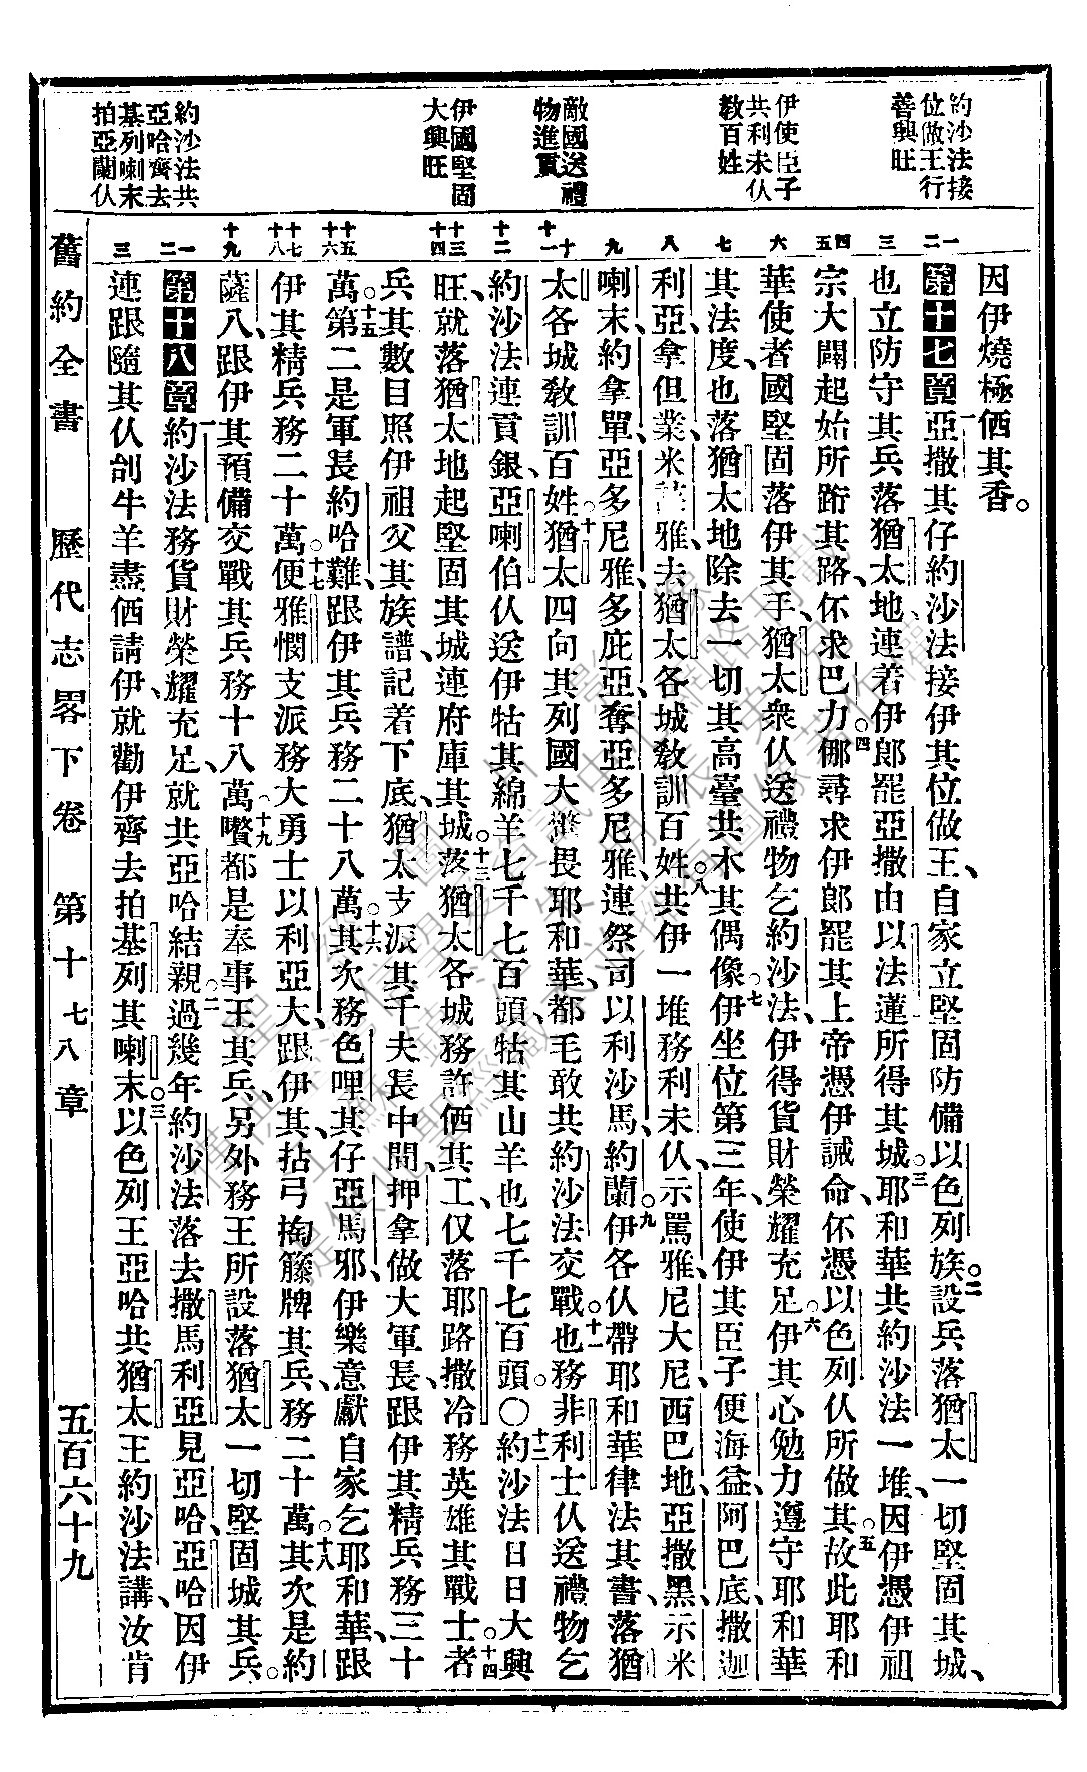 約沙法接
位做王行
善興旺
伊使臣子
共利未仈
敎百姓
敵國送禮
物進貢
伊國堅固
大興旺
約沙法共
亞哈齊去
基列喇末
拍亞蘭仈
因伊燒極価其香。
第十七章亞撒其仔約沙法接伊其位做王、自家立堅固防備以色列族。二設兵落猶太一切堅固其城、
也立防守其兵落猶太地連着伊郎罷亞撒由以法蓮所得其城。三耶和華共約沙法一堆、因伊憑伊祖
宗大闢起始所跡其路、伓求巴力。四㑚尋求伊郎罷其上帝憑伊誡命、伓憑以色列仈所做其。五故此耶和
華使者國堅固落伊其手、猶太衆仈送禮物乞約沙法、伊得貨財榮耀充足。六伊其心勉力遵守耶和華
其法度、也落猶太地除去一切其高臺共木其偶像。七伊坐位第三年、使伊其臣子便海益、阿巴底、撒迦
利亞、拿但業、米該雅、去猶太各城敎訓百姓。八共伊一堆務利未仈、示罵雅、尼大尼、西巴地亞、撒黑、示米
喇末、約拿單、亞多尼雅、多庇亞、奪亞多尼雅、連祭司以利沙馬、約蘭。九伊各仈帶耶和華律法其書、落猶
太各城敎訓百姓。十猶太四向其列國大𢥠畏耶和華、都毛敢共約沙法交戰。十一也務非利士仈送禮物乞
約沙法連貢銀、亞喇伯仈送伊牯其綿羊七千七百頭、牯其山羊也七千七百頭。〇十二約沙法日日大興
旺、就落猶太地起堅固其城、連府庫其城。十三落猶太各城務許価其工、仅落耶路撒冷務英雄其戰士。十四者
兵其數目照伊祖父其族譜、記着下底、猶太支派其千夫長中間、押拿做大軍長、跟伊其精兵務三十
萬。十五第二是軍長約哈難、跟伊其兵務二十八萬。十六其次務色哩其仔亞馬邪、伊樂意獻自家乞耶和華、跟
伊其精兵務二十萬。十七便雅憫支派務大勇士以利亞大、跟伊其、拈弓掏籐牌其兵、務二十萬。十八其次是約
薩八、跟伊其預備交戰其兵務十八萬。十九嚽都是奉事王其兵、另外務王所設落猶太一切堅固城其兵。
第十八章約沙法務貨財榮耀充足、就共亞哈結親。二過幾年約沙法落去撒馬利亞見亞哈、亞哈因伊
連跟隨其仈刣牛羊盡価請伊、就勸伊齊去拍基列其喇末。三以色列王亞哈共猶太王約沙法講、汝肯
舊約全書　歷代志畧下卷　第十七八章　五百六十九